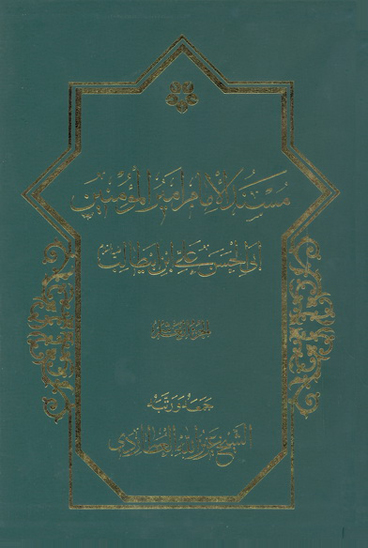 مسند الإمام أمير المؤمنين
أبي الحسن علي ابن ابيطالب
الجزء
جمعه ورتبه
الشيخ عزيز الله العطاردي